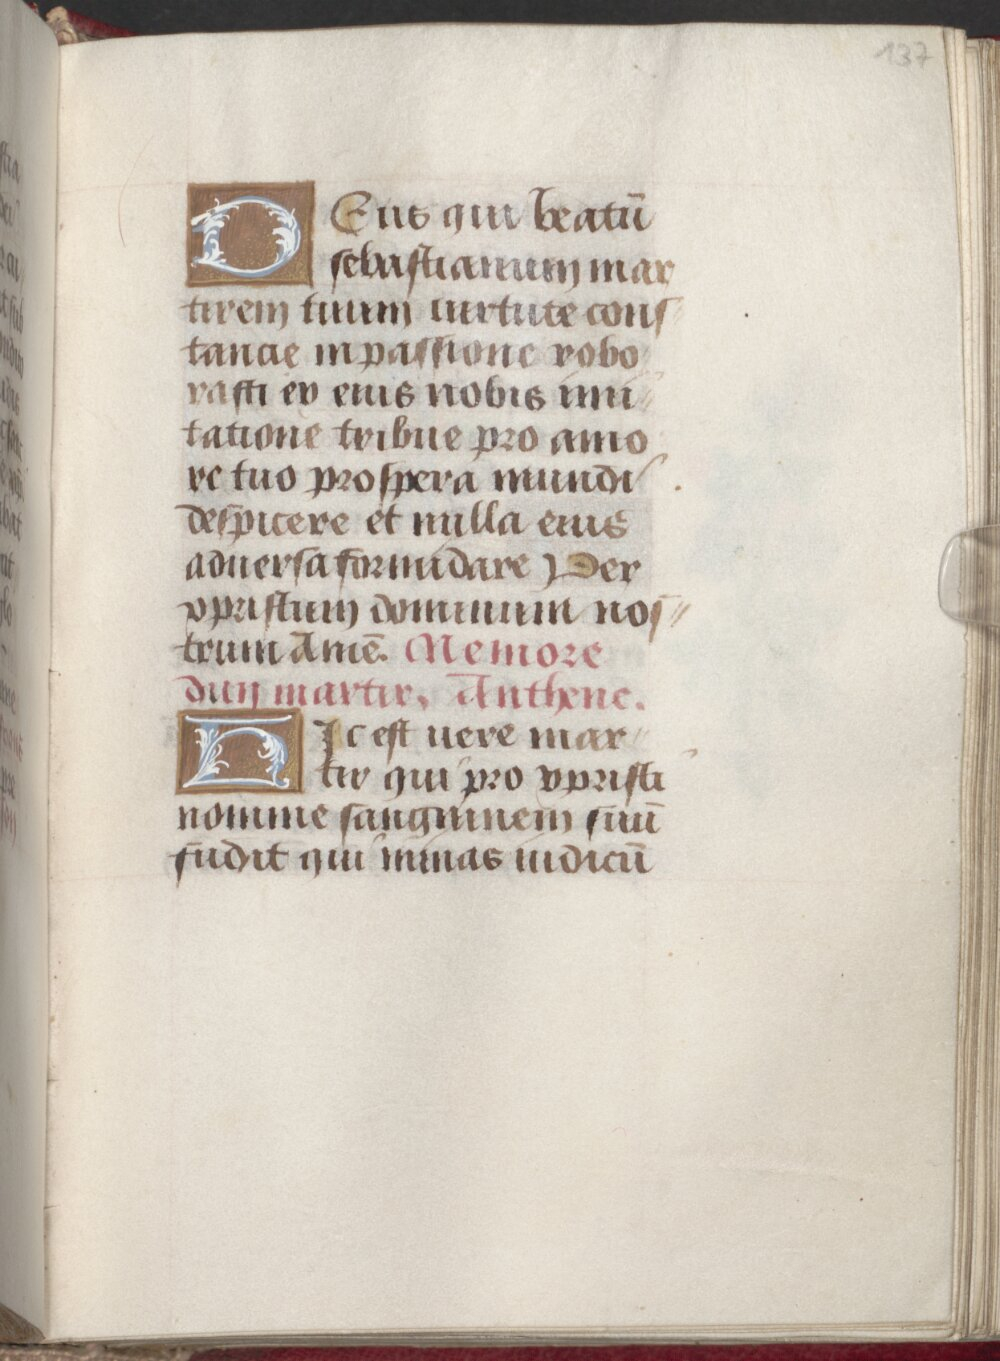 137
DEus qui beatū
sebastianum mar
tirem tuum uirtute cons
tancie in passione robo
rasti ex eius nobis imi
tatione tribue pro amo
re tuo prospera mundi
despicere et nulla eius
aduersa formidare Per
xpristum dominum nos
trum Amē. Memore
dun martir. Anthene.
HIc est uere mar
tir qui pro xpristi
nomine sanguinem suū
fudit qui minas iudicū